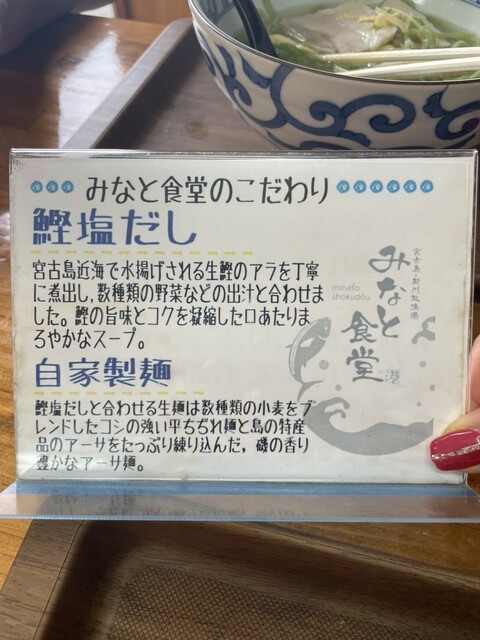 みなと食堂のこだわり
鰹塩だし
宮古島近海で水揚げされる生鰹のアラを丁寧
に煮出し,数種類の野菜などの出汁と合わせま
した。鰹の旨味とコクを凝縮した口あたりま
ろやかなスープ。
自家製麺
鰹塩だしと合わせる生麺は数種類の小麦をブ
レンドしたコシの強い平ちぢれ麺と島の特産
品のアーサをたっぷり練り込んだ,磯の香り
豊かなアーサ麺。
minato
shokudou
みなと
食堂